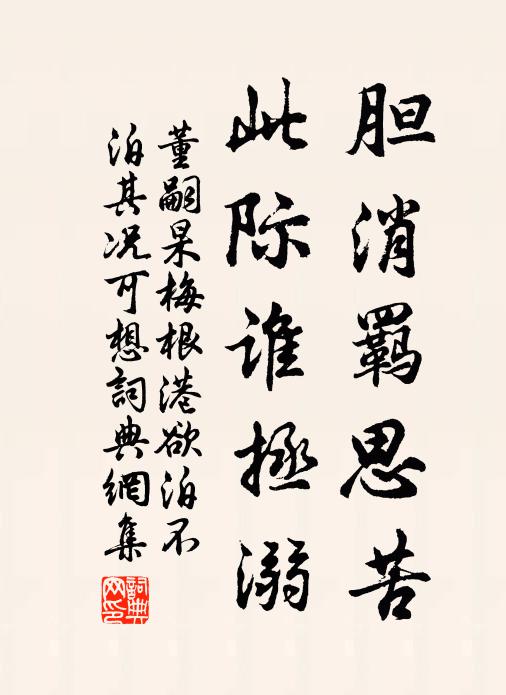 胆消羁思苦
此际谁拯溺
董嗣杲梅根港欲泊不
泊其况可想詞典網集
詞典網印